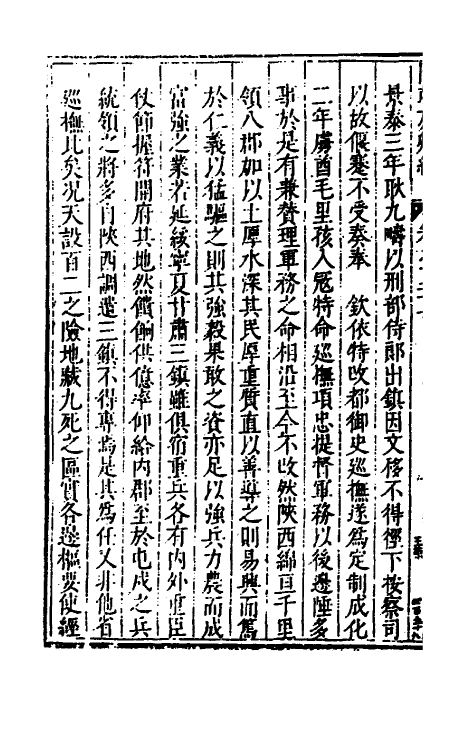 景泰三年耿九疇以刑部侍郎出鎮因文移不得徑下按察司
以故偃蹇不受奏奉 欽依特改都御史巡撫遂爲定制成化
二年虜酋毛里孩入冦特命巡撫項忠提督軍務以後邊陲多
事於是有兼贊理軍務之命相沿至今不改然陝西綿亘千里
領八郡加以土厚水深其民厚重質直以善導之則易興而篤
於仁義以猛驅之則其強毅果敢之資亦足以強兵力農而成
富強之業若延綏寧夏甘肅三鎮雖俱宿重兵各有内外重臣
仗節握符開府其地然饋餉供億率仰給内郡至於屯戍之兵
統領之將多自陝西調遣三鎮不得專焉是其爲任又非他省
巡撫比矣况天設百二之險地藏九死之區實各邊樞要使經